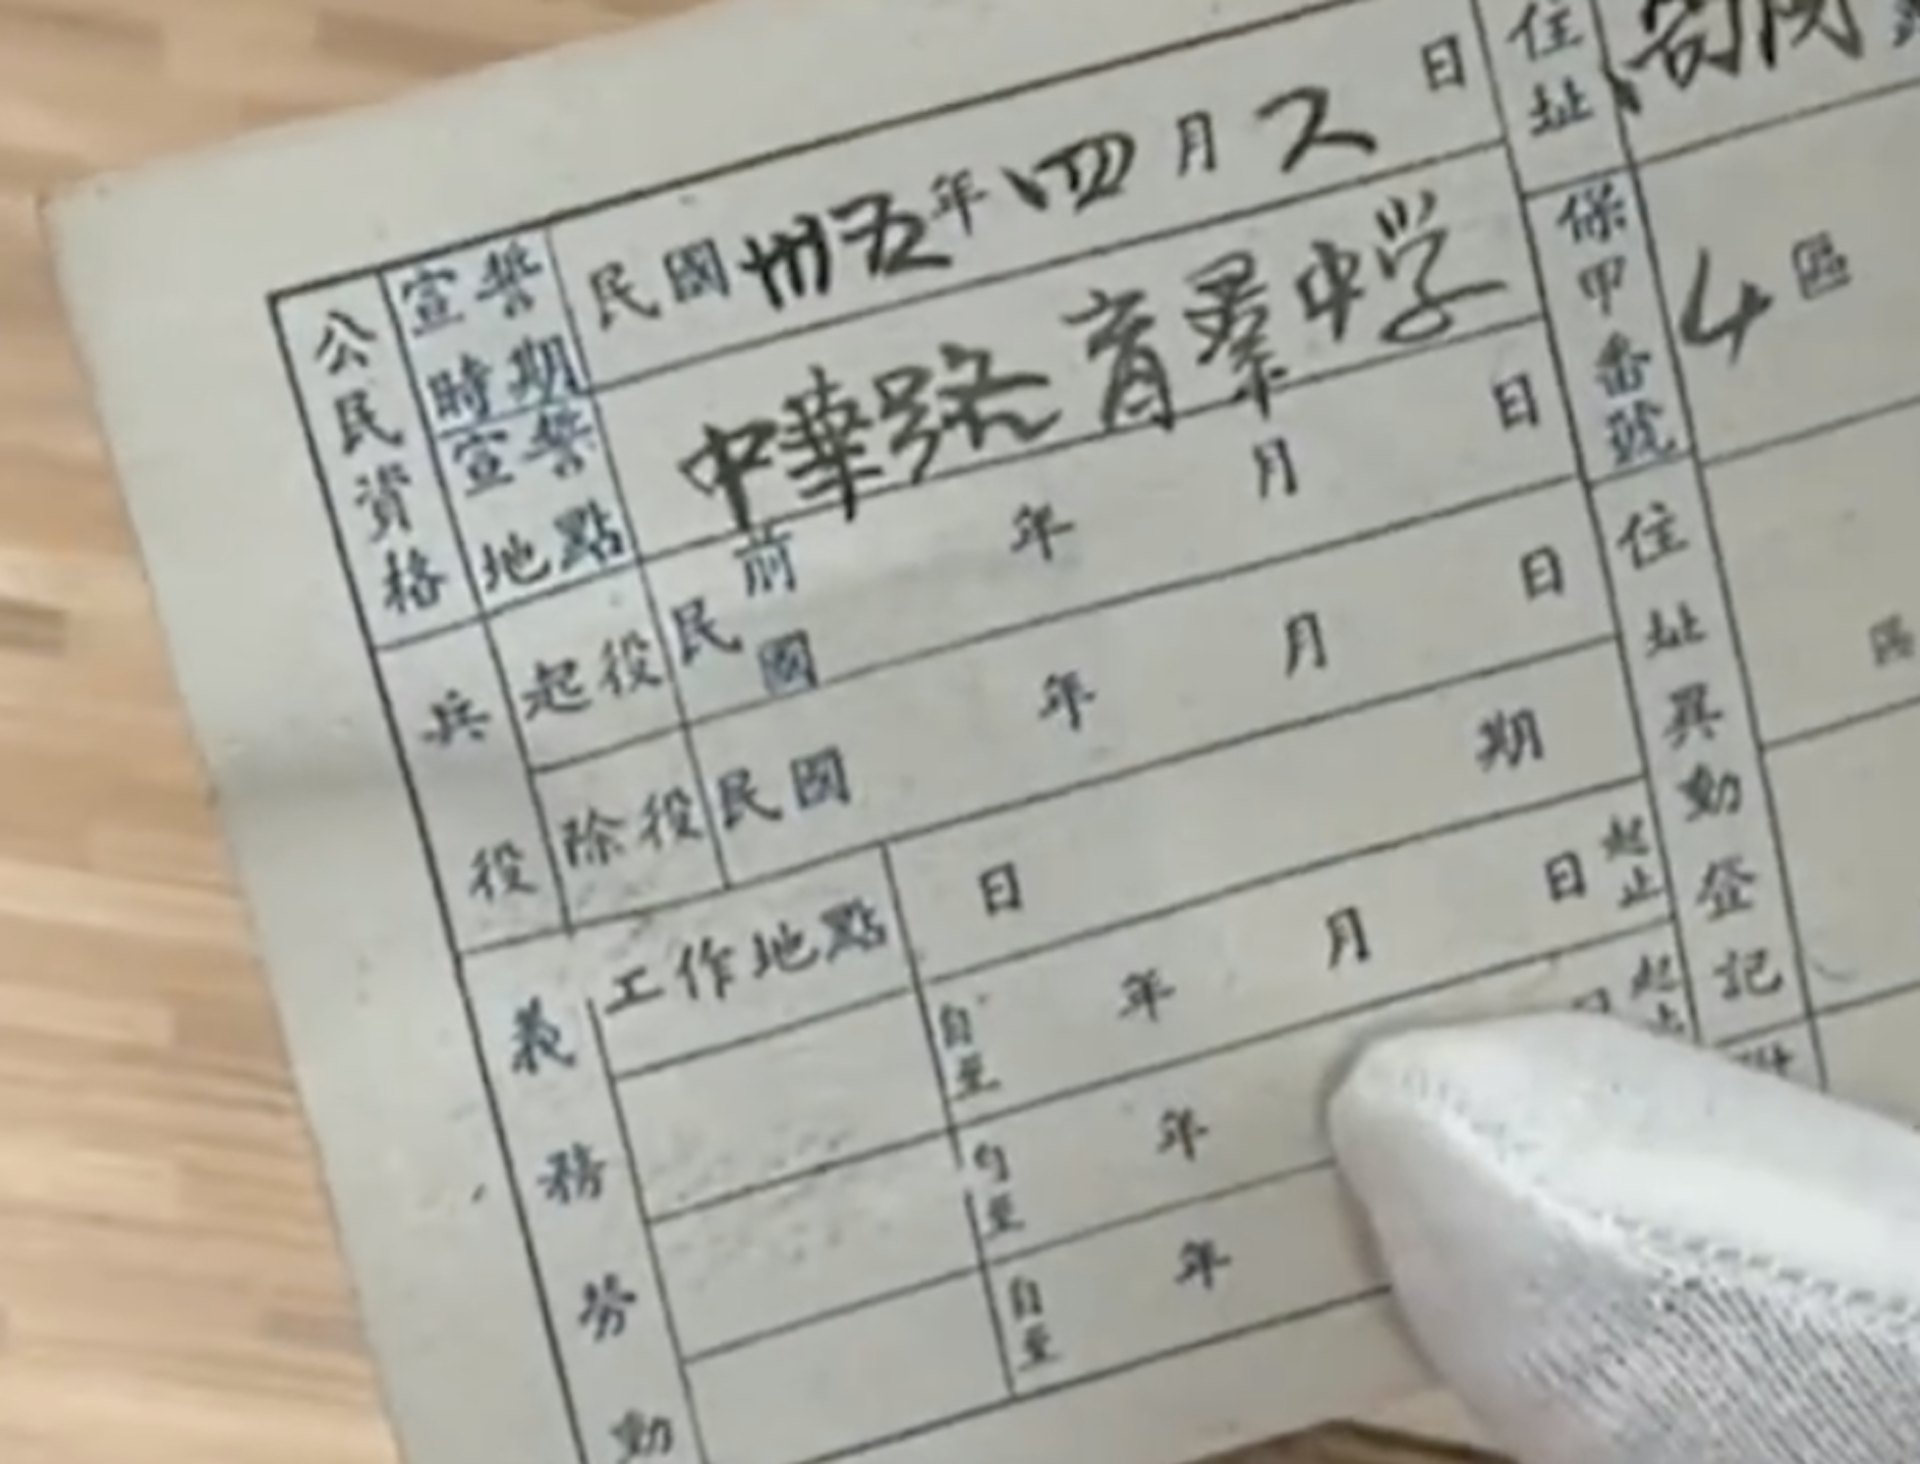 公民資格
宣誓時期
民國卅五年四月 日
宣誓地點
中華路育群中学
兵役
起役
民前國 年 月 日
除役
民國 年 月 日
義務勞動
工作地點
日 期
自至 年 月 日 起止
自至 年 日 起止
自至 年
住址
保甲番號
4區
住址異動登記
區